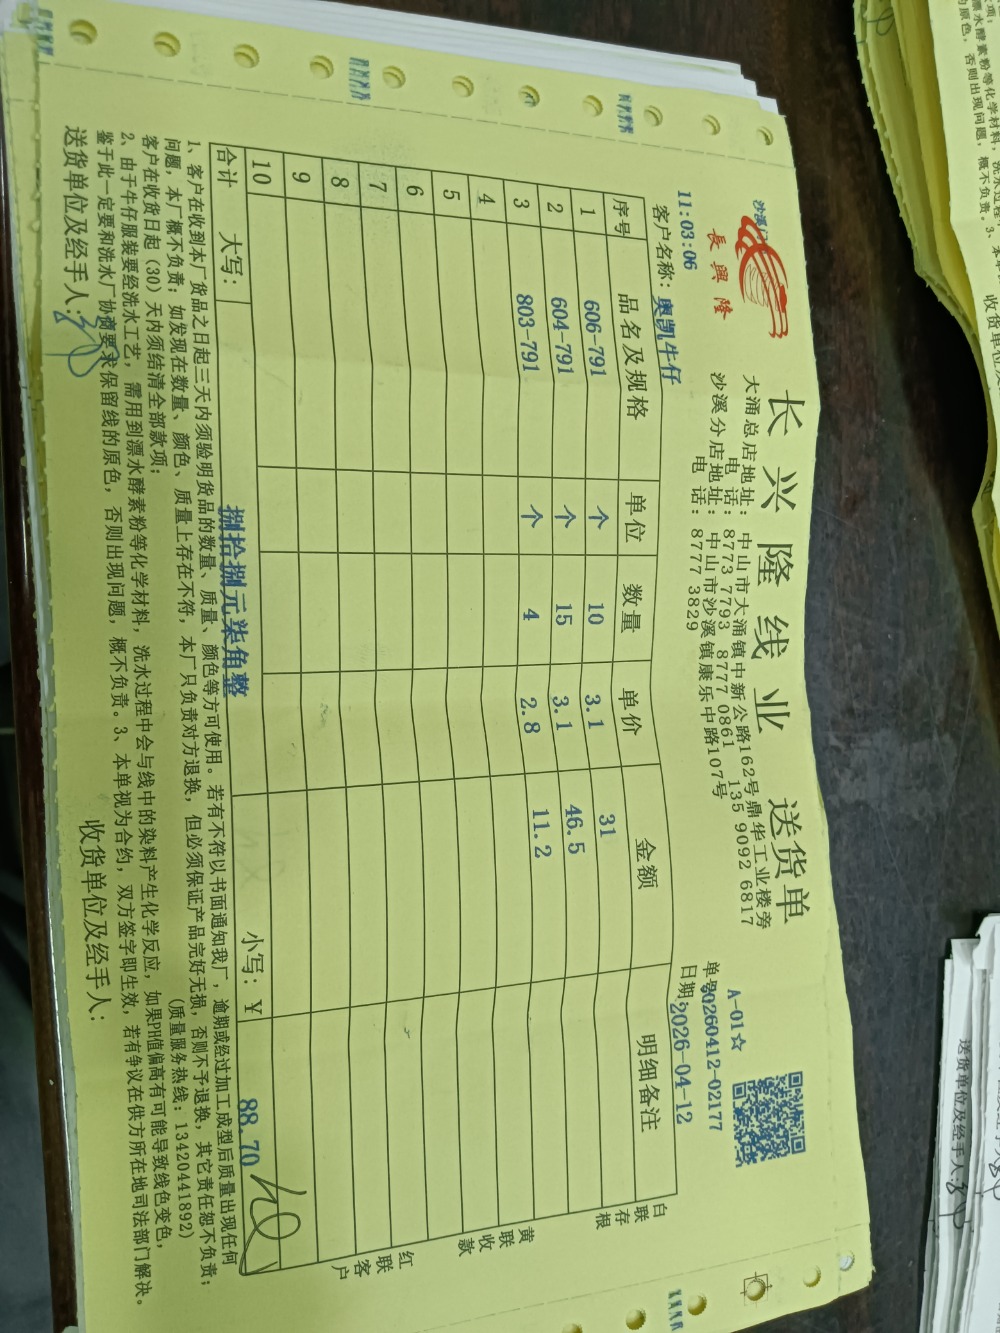 長興隆
长兴隆线业 送货单
大涌总店地址：中山市大涌镇中新公路162号鼎华工业楼旁
电话：8773 7793 8777 0861 135 9092 6817
沙溪分店地址：中山市沙溪镇康乐中路107号
电话：8777 3829
A-01☆
单号20260412-02177
日期：2026-04-12
11:03:06
客户名称：奥凯牛仔
序号 品名及规格 单位 数量 单价 金额 明细备注
1 606-791 个 10 3.1 31
2 604-791 个 15 3.1 46.5
3 803-791 个 4 2.8 11.2
4
5
6
7
8
9
10
合计 大写： 捌拾捌元柒角整 小写：¥ 88.70
白联存根
黄联收款
红联客户
1、客户在收到本厂货品之日起三天内须验明货品的数量、质量、颜色等方可使用。若有不符以书面通知我厂，逾期或经过加工成型后质量出现任何
问题，本厂概不负责；如发现在数量、颜色、质量上存在不符，本厂只负责对方退换，但必须保证产品完好无损，否则不予退换，其它责任恕不负责；
客户在收货日起（30）天内须结清全部款项； （质量服务热线：13420441892）
2、由于牛仔服装要经洗水工艺，需用到漂水酵素粉等化学材料，洗水过程中会与线中的染料产生化学反应，如果PH值偏高有可能导致线色变色，
鉴于此一定要和洗水厂协商要求保留线的原色，否则出现问题，概不负责。3、本单视为合约，双方签字即生效，若有争议在供方所在地司法部门解决。
送货单位及经手人： 收货单位及经手人：
送货单位及经手人：